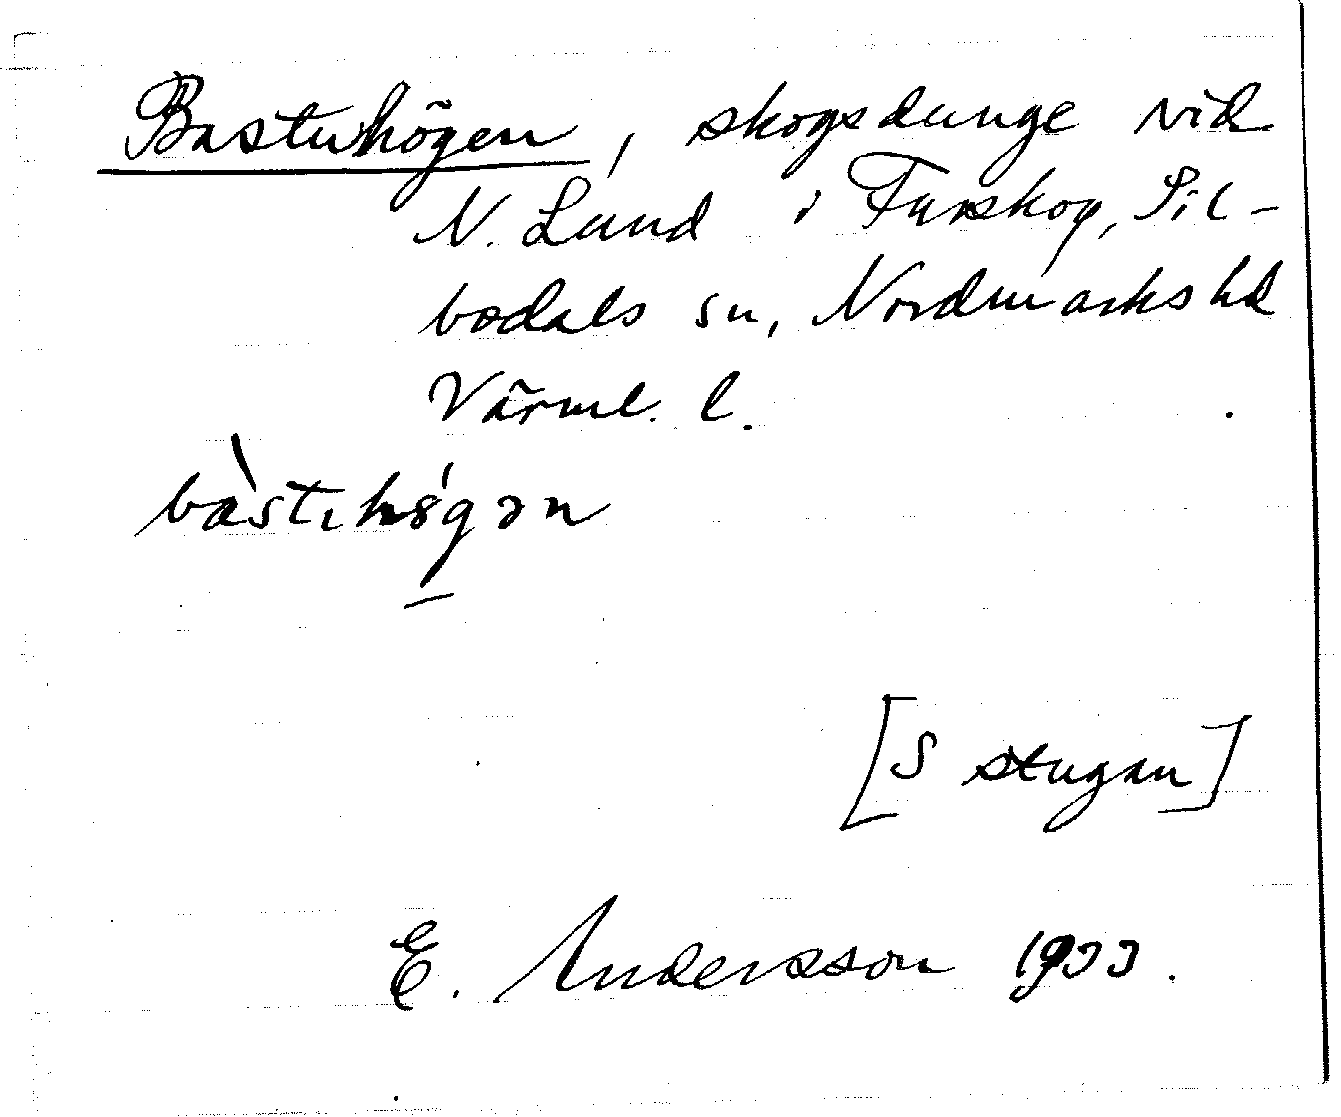 Bastuhögen, skogsdunge vid
N. Lund i Furskog, Sil-
bodals sn, Nordmarks hd
Värml. l.
bàstıhö́gən
[S stugan]
E. Andersson 1933.